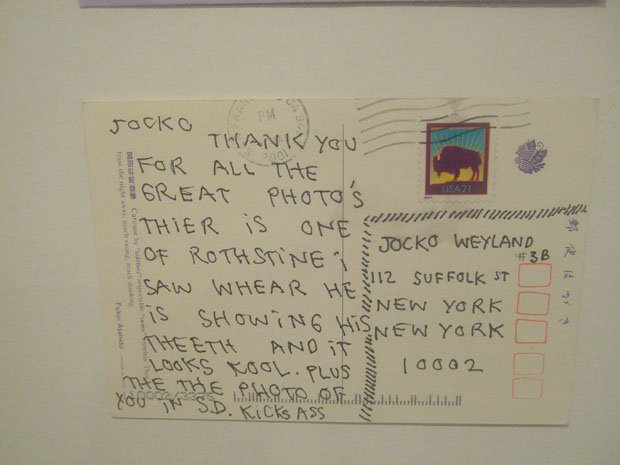 JOCKO
THANK YOU
FOR ALL THE
GREAT PHOTO'S
THIER IS ONE
OF ROTHSTINE I
SAW WHEAR HE
IS SHOWING HIS
THEETH AND IT
LOOKS KOOL. PLUS
THE THE PHOTO OF
YOU IN S.D. KICKS ASS
PM
2001
USA21
JOCKO WEYLAND
#3B
112 SUFFOLK ST
NEW YORK
NEW YORK
10002
郵便はがき
from the night away, much eating, much drinking.
Fukui Asahido